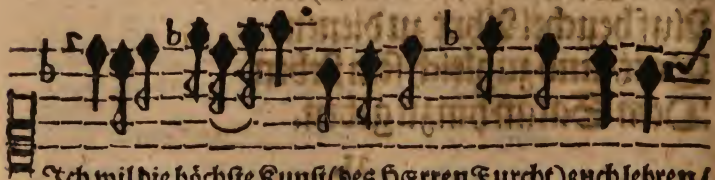 Ich wil die höchste Kunst (des Herren Furcht) euch lehren /